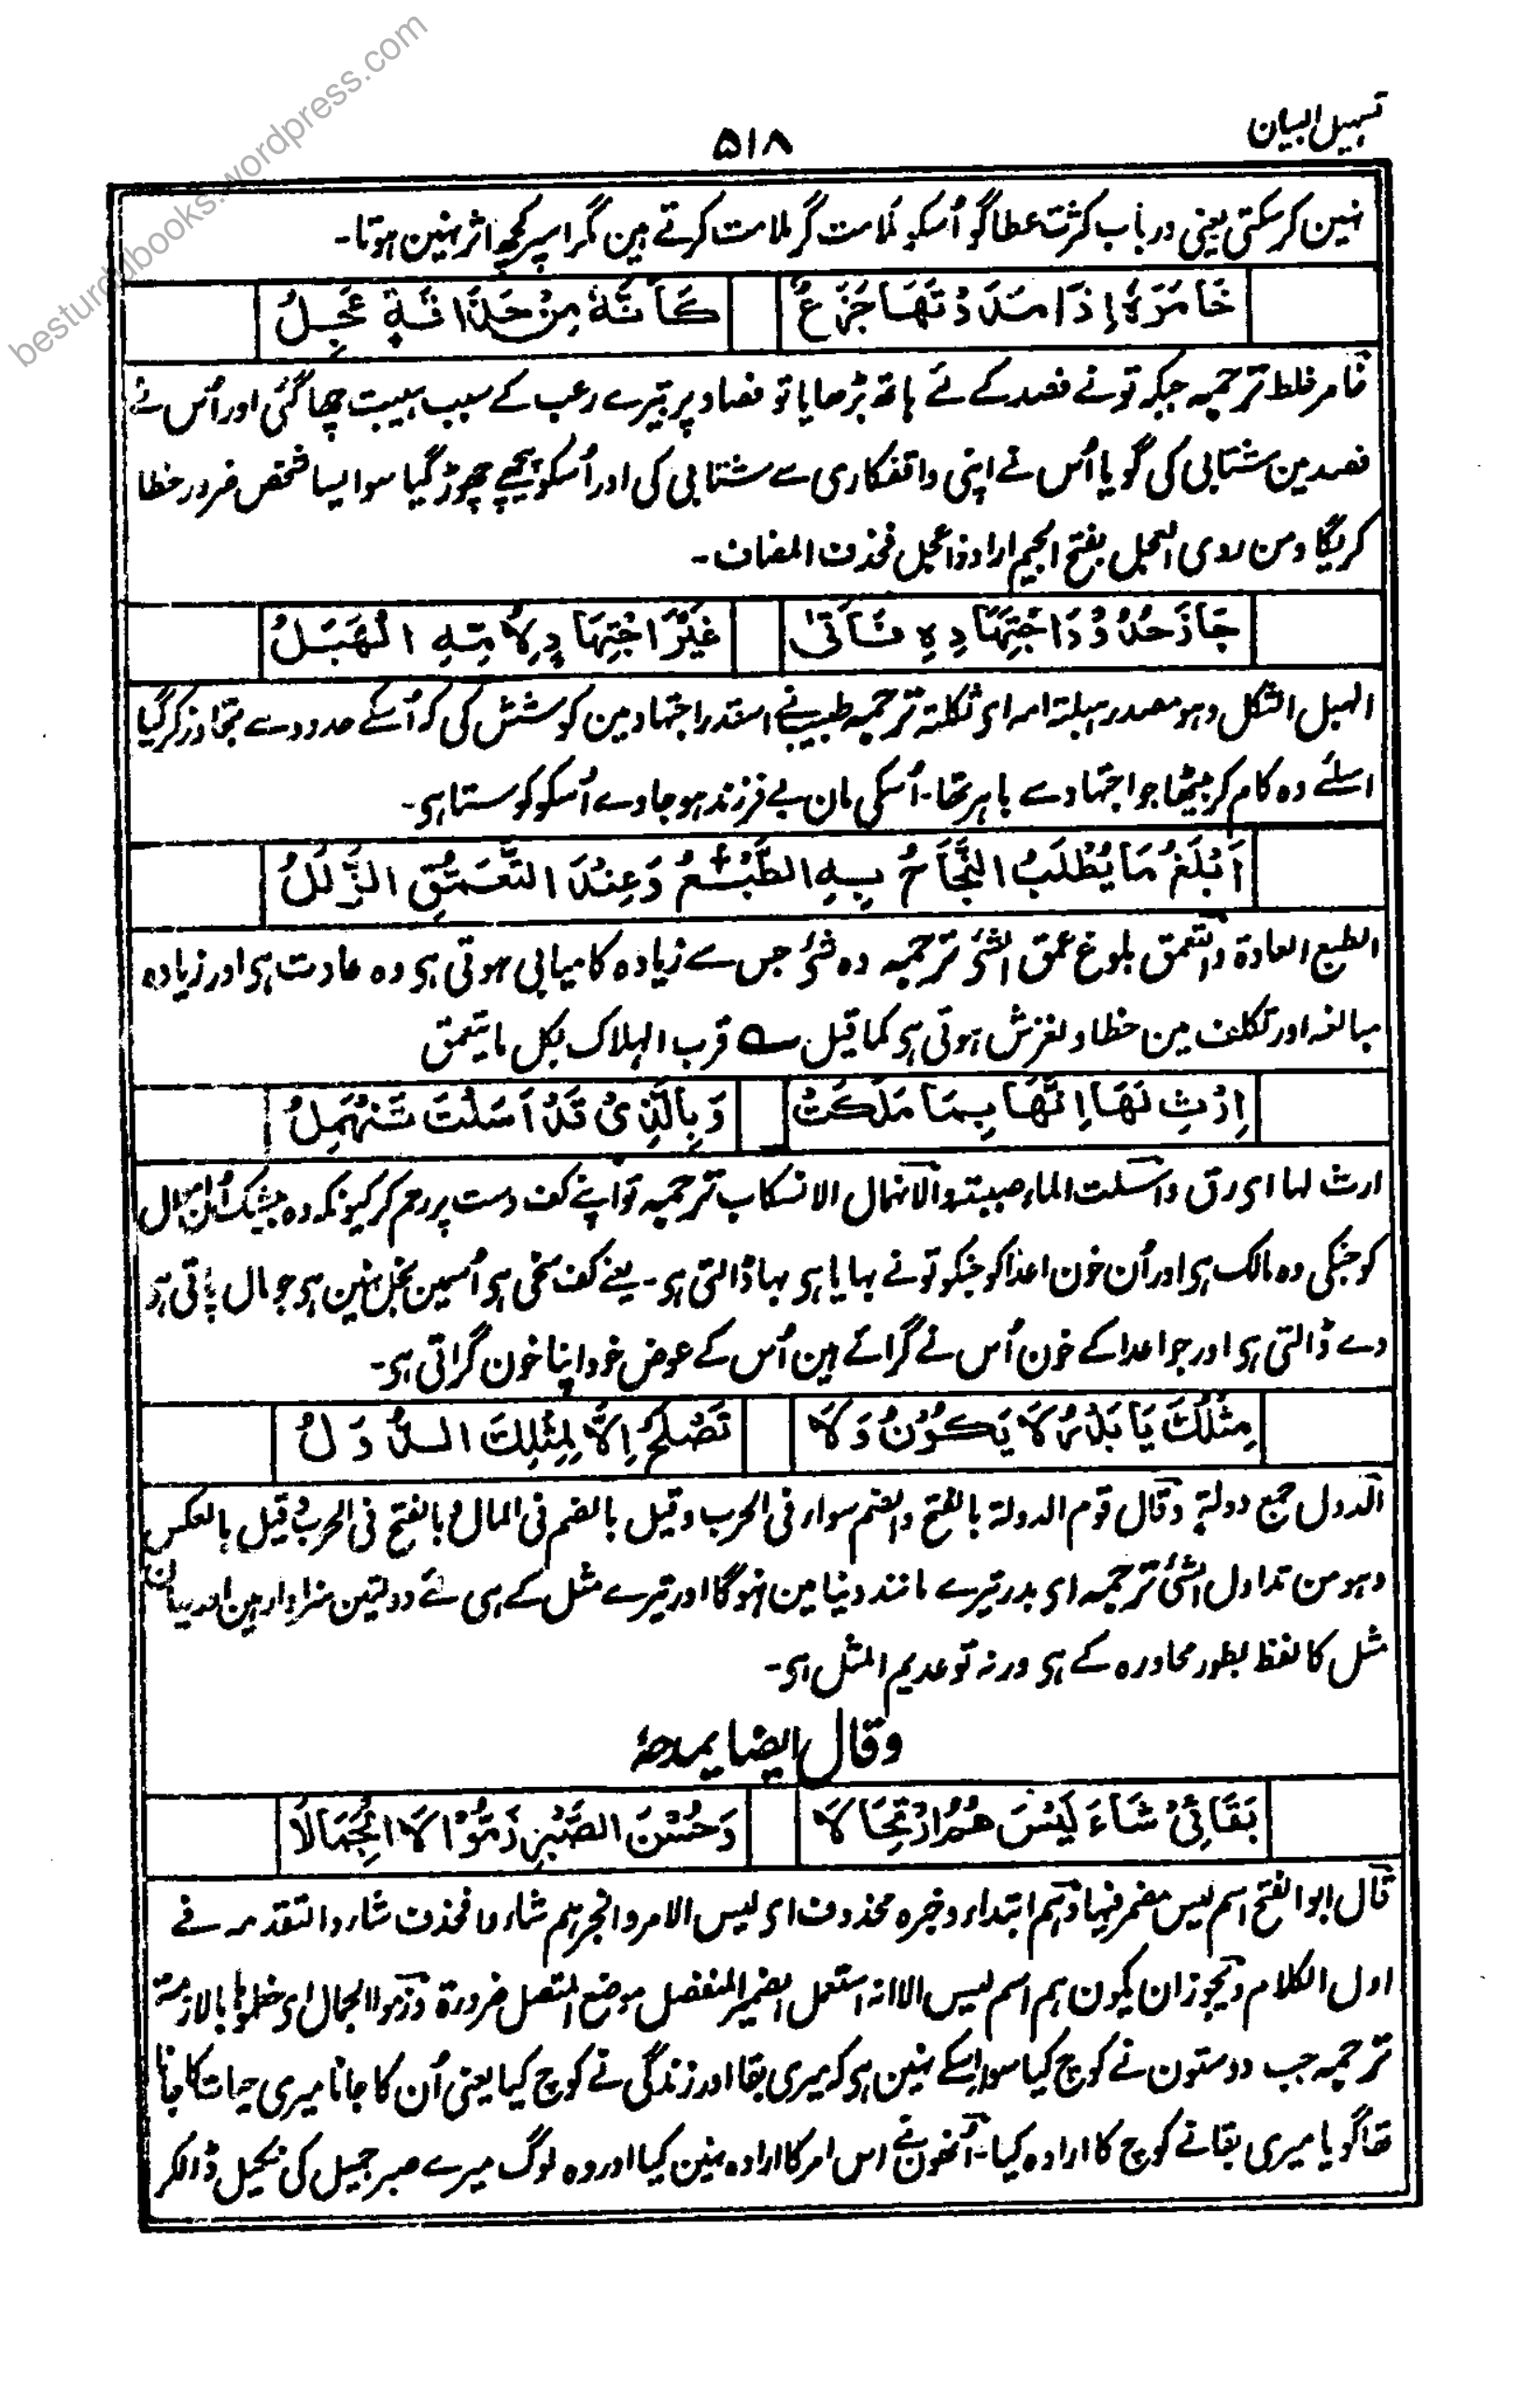 besturdubooks.wordpress.com
تسہیل البیان
۵۱۸
نہین کر سکتی یعنی در باب کثرت عطا گو اُسکو ملامت گر ملامت کرتے ہین مگر اسپر کچھ اثر نہین ہوتا۔
خَامَرَهٗ اِذَا مَدَدْتَهَا جَزَعٌ كَاَنَّهٗ مِنْ حَذَاقَةٍ عَجِلُ
خامر خلط ترجمہ جبکہ تونے فصد کے لئے ہاتھ بڑھایا تو فصاد پر تیرے رعب کے سبب ہیبت چھا گئی اور اُس نے
فصد مین شتابی کی گویا اُس نے اپنی واقفکاری سے شتابی کی اور اُسکو پیچھے چھوڑ گیا سو ایسا شخص ضرور خطا
کریگا ومن روی العجل بفتح الجیم اراد ذا عجل فحذف المضاف۔
جَازَ حُدُوْدَ اجْتِهَادِهٖ فَاَتٰى غَيْرَ اجْتِهَادٍ لِاُمِّهِ الْهَبَلُ
الہبل الثکل وہو مصدر ہبلتہ امہ ای ثکلتہ ترجمہ طبیبنے اسقدر اجتہاد مین کوشش کی کہ اُسکے حدود سے تجاوز کر گیا
اسلئے وہ کام کر بیٹھا جو اجتہاد سے باہر تھا۔ اُسکی مان بے فرزند ہو جاوے اُسکو کوستا ہی۔
اَبْلَغُ مَا يُطْلَبُ النَّجَاحُ بِهِ الطَّبْعُ وَعِنْدَ التَّعَمُّقِ الزَّلَلُ
الطبع العادۃ والتعمق بلوغ عمق الشئ ترجمہ وہ شئ جس سے زیادہ کامیابی ہوتی ہی وہ عادت ہی اور زیادہ
مبالغہ اور تکلف مین خطا و لغزش ہوتی ہی کما قیل ؎ قرب الہلاک بکل ما یتعمق
اِرْثِ لَهَا اِنَّهَا بِمَا مَلَكَتْ وَبِالَّذِىْ قَدْ اَسَلْتَ تَنْهَمِلُ
ارث لہا ای رق واسلت الماء صببتہ والانہمال الانسکاب ترجمہ تو اپنے کف دست پر رحم کر کیونکہ وہ بیشک اُس مال
کو جنکی وہ مالک ہی اور اُن خون اعدا کو جنکو تونے بہایا ہی بہا ڈالتی ہی۔ یعنے کف سخی ہی اُسمین بخل نہین ہی جو مال پاتی ہی
دے ڈالتی ہی اور جو اعدا کے خون اُس نے گرائے ہین اُس کے عوض خود اپنا خون گراتی ہی۔
مِثْلُكَ يَا بَدْرُ لَا يَكُوْنُ وَلَا تَصْلُحُ اِلَّا لِمِثْلِكَ الدُّوَلُ
الدول جمع دولۃ وقال قوم الدولۃ بالفتح والضم سواء فی الحرب وقیل بالضم فی المال وبالفتح فی الحرب وقیل بالعکس
وہو من تداول الشئ ترجمہ ای بدر تیرے مانند دنیا مین نہوگا اور تیرے مثل کے ہی لئے دولتین سزاوار ہین اور یہان
مثل کا لفظ بطور محاورہ کے ہی ورنہ تو عدیم المثل ہی۔
وقال ایضا یمدحہٗ
بَقَائِىْ شَاءَ لَيْسَ هُمُ ارْتِحَالَا وَحُسْنَ الصَّبْرِ زَمُّوْا لَا الْجِمَالَا
قال ابو الفتح اسم لیس مضمر فیہا وہم ابتداء وخبرہ محذوف ای لیس الامر والخبر ہم شاءوا فحذف شاءوا لتقدمہ فے
اول الکلام ویجوز ان یکون ہم اسم لیس الا انہ استعمل الضمیر المنفصل موضع المتصل ضرورۃ وزموا الجمال ای خطموہا بالازمۃ
ترجمہ جب دوستون نے کوچ کیا سوا اسکے نہین ہی کہ میری بقا اور زندگی نے کوچ کیا یعنی اُن کا جانا میری حیات کا جانا
تھا گویا میری بقانے کوچ کا ارادہ کیا۔ اُنھون نے اس امر کا ارادہ نہین کیا اور وہ لوگ میرے صبر جمیل کی نکیل ڈالکر